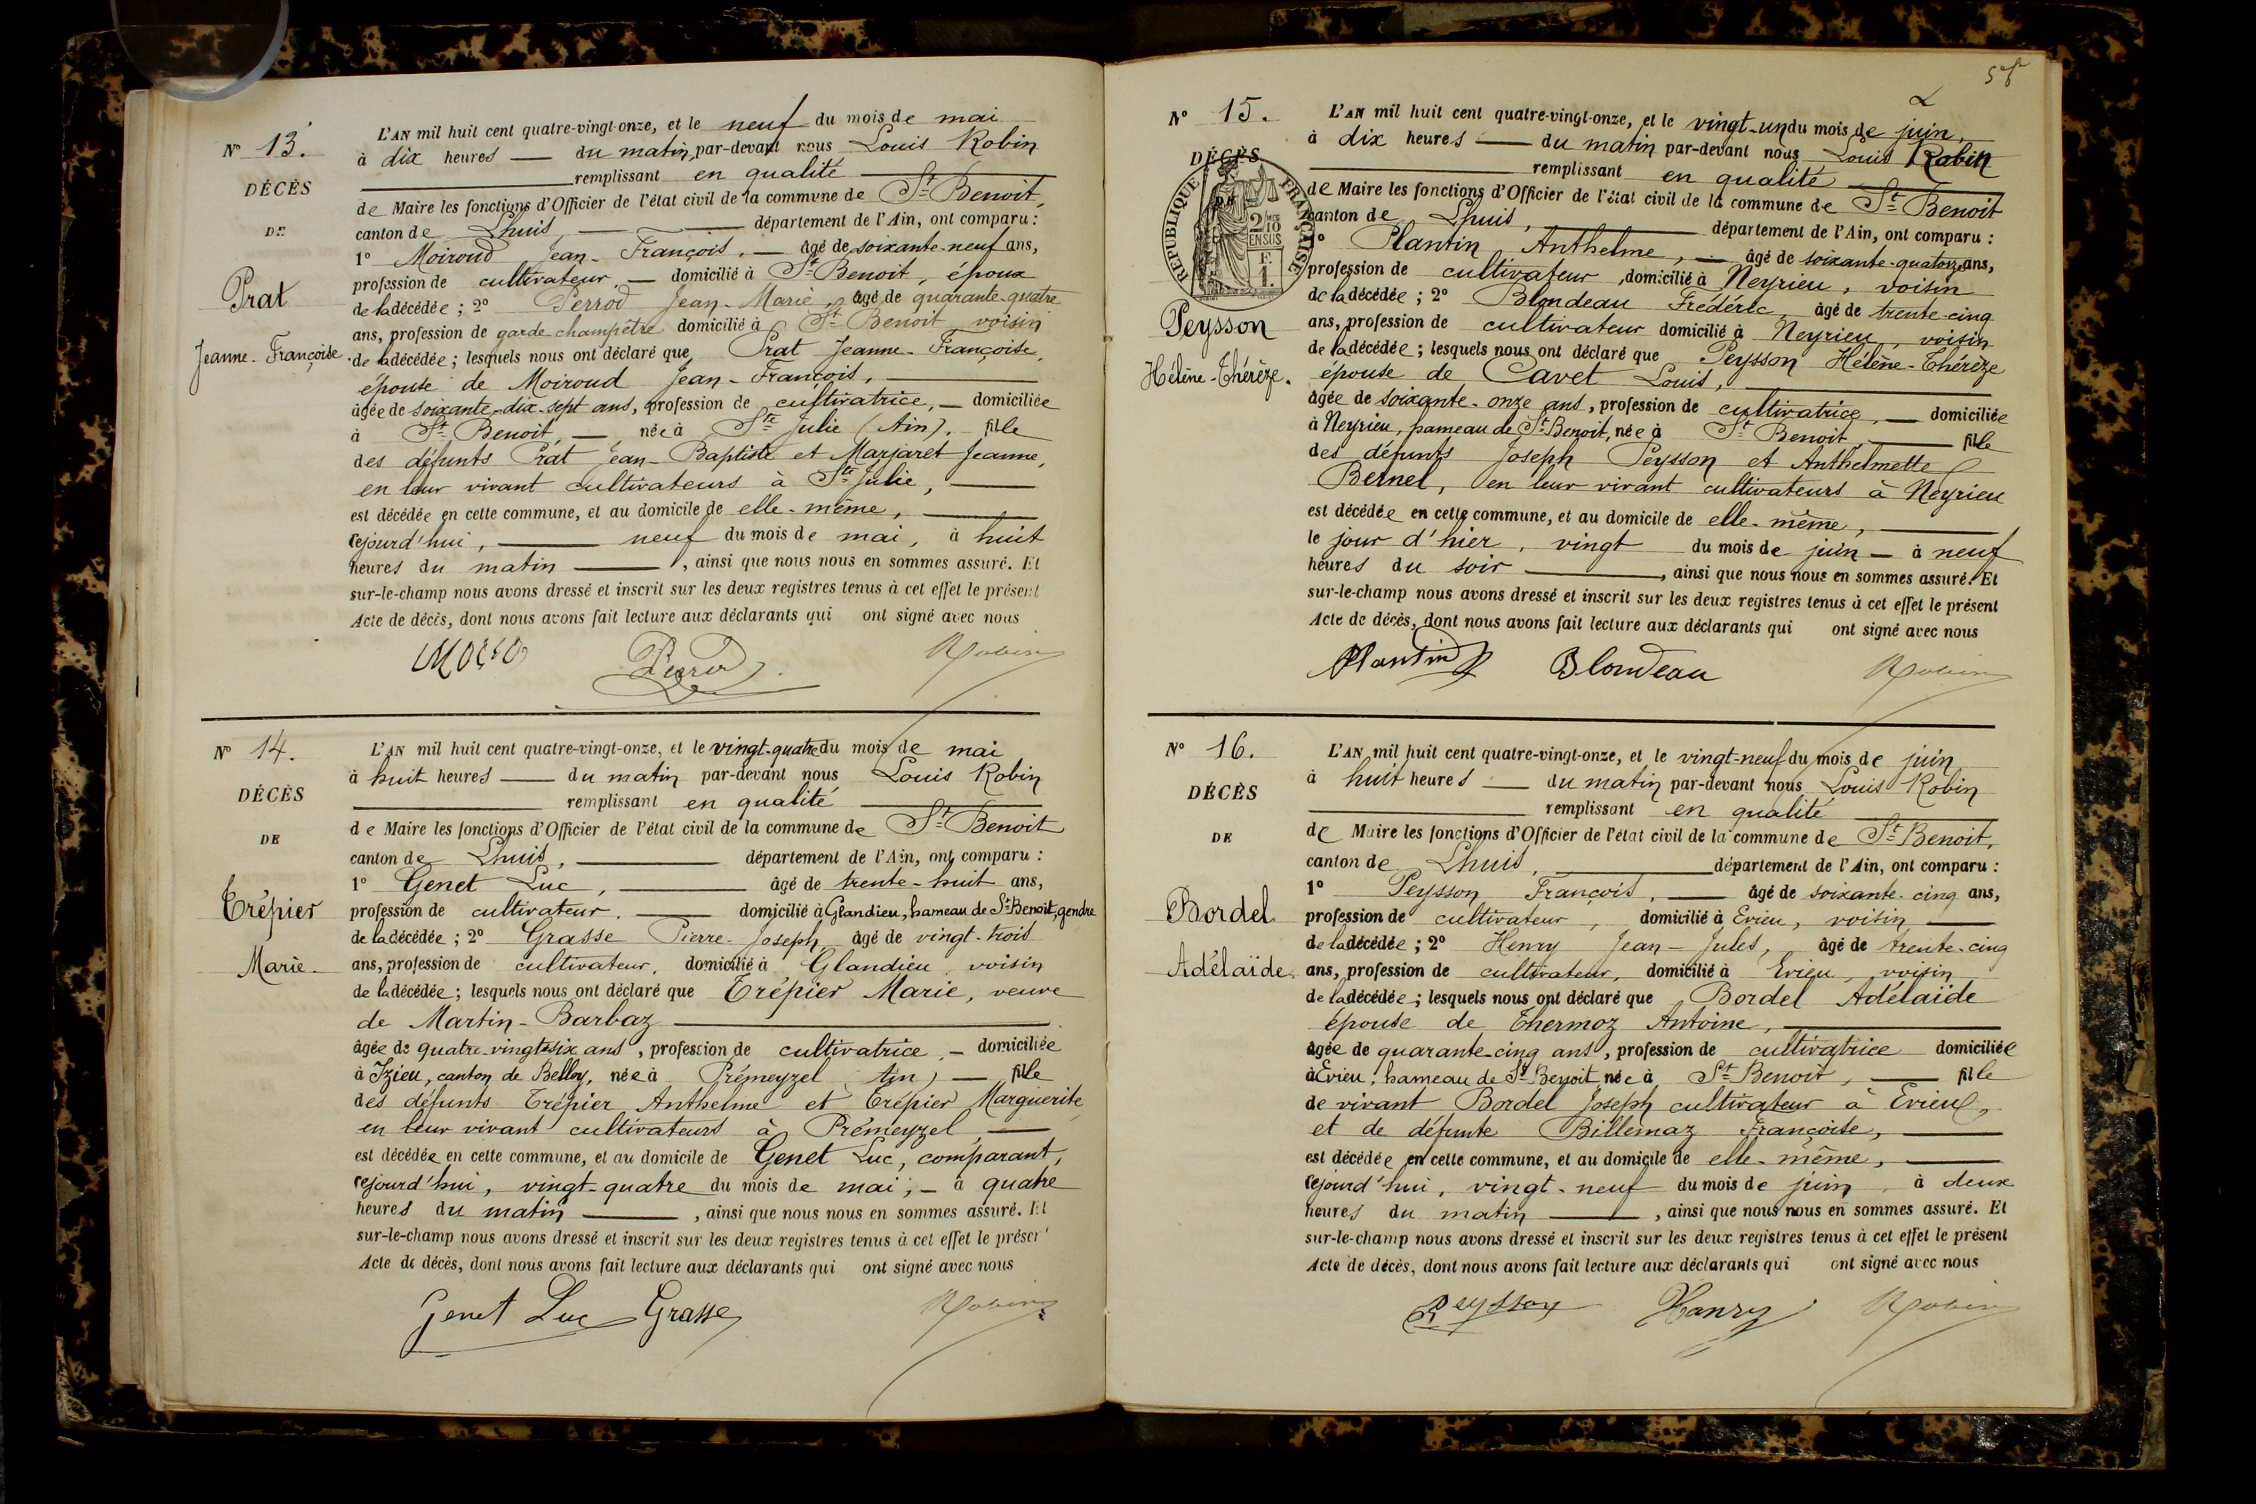 N° 13.
DÉCÈS
DE
Prat
Jeanne-Françoise.
L'AN mil huit cent quatre-vingt-onze, et le neuf du mois de mai
à dix heures — du matin, par-devant nous Louis Robin
— remplissant en qualité —
de Maire les fonctions d'Officier de l'état civil de la commune de St Benoit,
canton de Lhuis, — département de l'Ain, ont comparu :
1° Moiroud Jean-François, — âgé de soixante-neuf ans,
profession de cultivateur, — domicilié à St Benoit, époux
de la décédée ; 2° Perrod Jean-Marie, âgé de quarante-quatre
ans, profession de garde champêtre domicilié à St Benoit voisin
de la décédée ; lesquels nous ont déclaré que Prat Jeanne-Françoise,
épouse de Moiroud Jean-François, —
âgée de soixante-dix-sept ans, profession de cultivatrice, — domiciliée
à St Benoit, — née à Ste Julie (Ain). fille
des défunts Prat Jean-Baptiste et Marjaret Jeanne,
en leur vivant cultivateurs à Ste Julie, —
est décédée en cette commune, et au domicile de elle-même, —
cejourd'hui, — neuf du mois de mai, à huit
heures du matin —, ainsi que nous nous en sommes assuré. Et
sur-le-champ nous avons dressé et inscrit sur les deux registres tenus à cet effet le présent
Acte de décès, dont nous avons fait lecture aux déclarants qui ont signé avec nous
Perrod Robin
N° 14.
DÉCÈS
DE
Trépier
Marie
L'AN mil huit cent quatre-vingt-onze, et le vingt-quatre du mois de mai
à huit heures — du matin par-devant nous Louis Robin
— remplissant en qualité —
de Maire les fonctions d'Officier de l'état civil de la commune de St Benoit
canton de Lhuis, — département de l'Ain, ont comparu :
1° Genet Luc, — âgé de trente-huit ans,
profession de cultivateur. — domicilié à Glandieu, hameau de St Benoit, gendre
de la décédée ; 2° Grasse Pierre-Joseph, âgé de vingt-trois
ans, profession de cultivateur, domicilié à Glandieu voisin
de la décédée ; lesquels nous ont déclaré que Trépier Marie, veuve
de Martin-Barbaz —
âgée de quatre-vingt-six ans, profession de cultivatrice, — domiciliée
à Izieu, canton de Belley, née à Prémeyzel (Ain) — fille
des défunts Trépier Anthelme et Trépier Marguerite
en leur vivant cultivateurs à Prémeyzel, —
est décédée en cette commune, et au domicile de Genet Luc, comparant,
cejourd'hui, vingt-quatre du mois de mai, — à quatre
heures du matin —, ainsi que nous nous en sommes assuré. Et
sur-le-champ nous avons dressé et inscrit sur les deux registres tenus à cet effet le présent
Acte de décès, dont nous avons fait lecture aux déclarants qui ont signé avec nous
Genet Luc Grasse Robin
N° 15.
DÉCÈS
DE
REPUBLIQUE FRANÇAISE
2/10 EN SUS
F. 1.
Peysson
Hélène-Thérèze.
L'AN mil huit cent quatre-vingt-onze, et le vingt-un du mois de juin,
à dix heures — du matin par-devant nous Louis Robin
— remplissant en qualité —
de Maire les fonctions d'Officier de l'état civil de la commune de St Benoit
canton de Lhuis, — département de l'Ain, ont comparu :
1° Plantin Anthelme, — âgé de soixante-quatorze ans,
profession de cultivateur, domicilié à Neyrieu, voisin
de la décédée ; 2° Blondeau Frédéric, âgé de trente-cinq
ans, profession de cultivateur domicilié à Neyrieu, voisin
de la décédée ; lesquels nous ont déclaré que Peysson Hélène-Thérèze
épouse de Cavet Louis, —
âgée de soixante-onze ans, profession de cultivatrice, — domiciliée
à Neyrieu, hameau de St Benoit, née à St Benoit, — fille
des défunts Joseph Peysson et Anthelmette
Bernel, en leur vivant cultivateurs à Neyrieu
est décédée en cette commune, et au domicile de elle-même, —
le jour d'hier, vingt du mois de juin — à neuf
heures du soir —, ainsi que nous nous en sommes assuré. Et
sur-le-champ nous avons dressé et inscrit sur les deux registres tenus à cet effet le présent
Acte de décès, dont nous avons fait lecture aux déclarants qui ont signé avec nous
Plantin Blondeau Robin
N° 16.
DÉCÈS
DE
Bordel
Adélaïde.
L'AN mil huit cent quatre-vingt-onze, et le vingt-neuf du mois de juin
à huit heures — du matin par-devant nous Louis Robin
— remplissant en qualité —
de Maire les fonctions d'Officier de l'état civil de la commune de St Benoit,
canton de Lhuis, — département de l'Ain, ont comparu :
1° Peysson François, — âgé de soixante-cinq ans,
profession de cultivateur, domicilié à Evieu, voisin —
de la décédée ; 2° Henry Jean-Jules, âgé de trente-cinq
ans, profession de cultivateur, domicilié à Evieu, voisin
de la décédée ; lesquels nous ont déclaré que Bordel Adélaïde
épouse de Thermoz Antoine, —
âgée de quarante-cinq ans, profession de cultivatrice domiciliée
à Evieu, hameau de St Benoit née à St Benoit, — fille
de vivant Bordel Joseph cultivateur à Evieu,
et de défunte Billemaz Françoise, —
est décédée en cette commune, et au domicile de elle-même, —
cejourd'hui, vingt-neuf du mois de juin, à deux
heures du matin —, ainsi que nous nous en sommes assuré. Et
sur-le-champ nous avons dressé et inscrit sur les deux registres tenus à cet effet le présent
Acte de décès, dont nous avons fait lecture aux déclarants qui ont signé avec nous
Peysson Hanry Robin